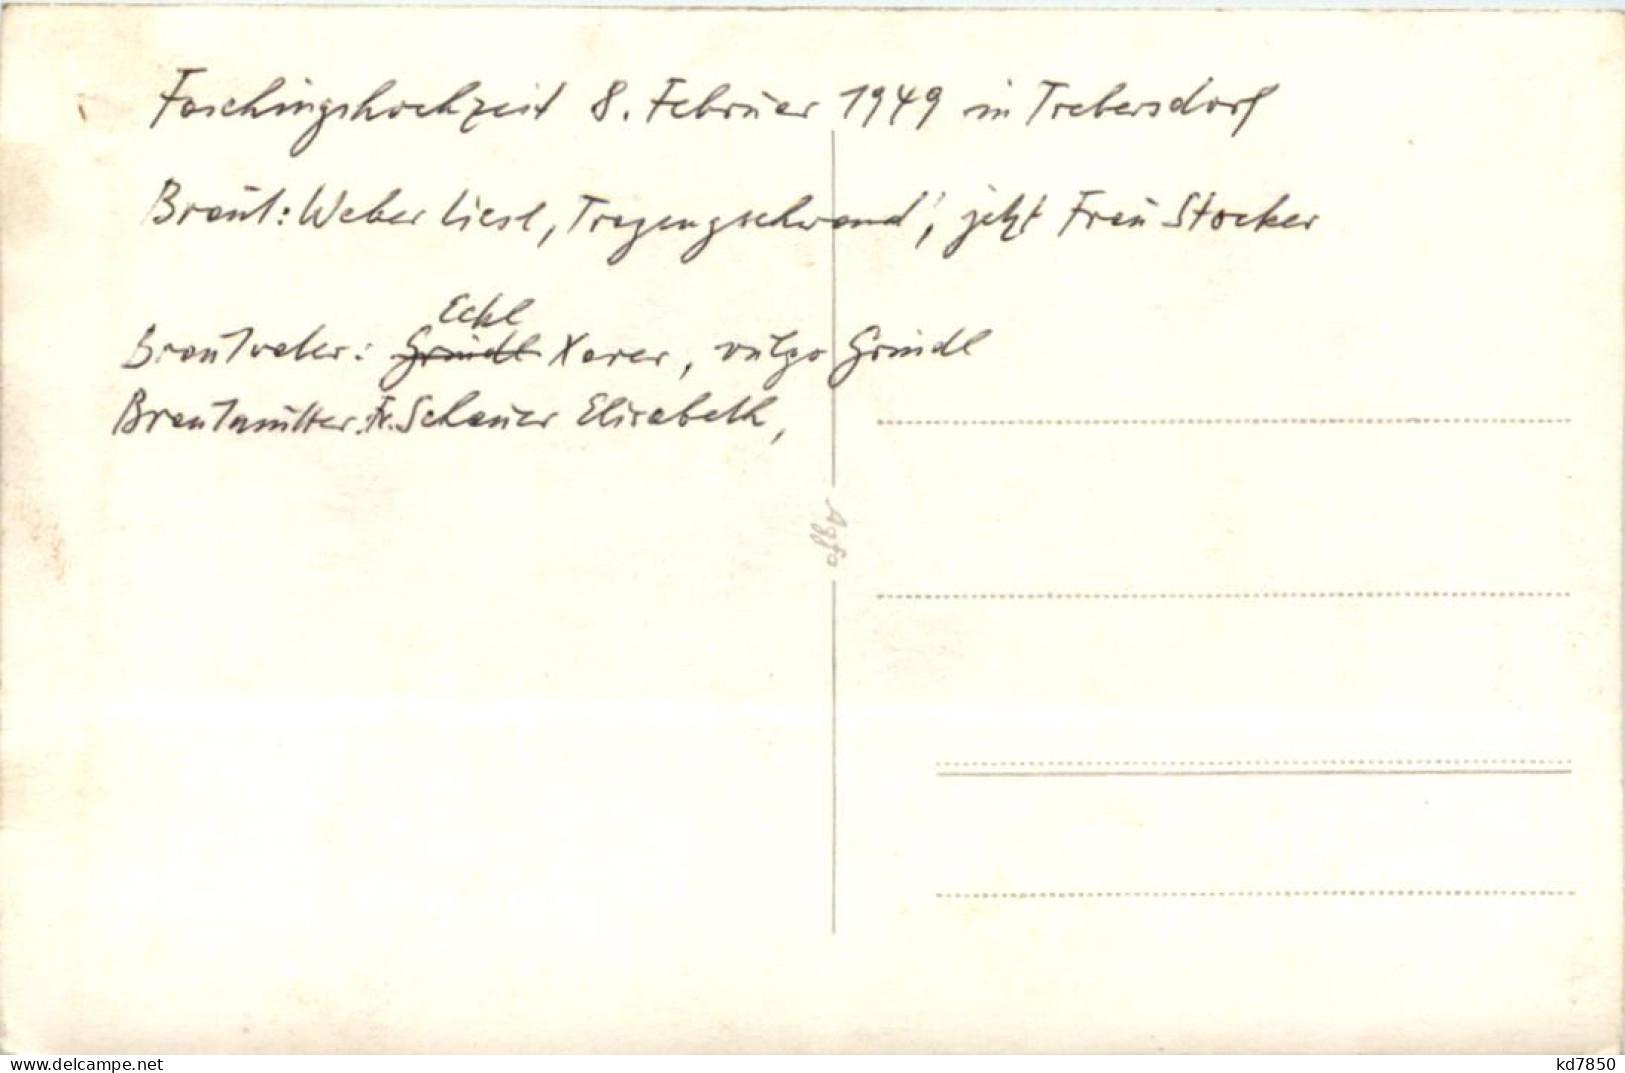 Faschingshochzeit 8. Februar 1949 in Trebersdorf
Braut: Weber Liesl, Tragenschwand, jetzt Frau Stocker
Eckl
Brautvater: Greindl Xaver, vulgo Greindl
Brautmutter: Fr. Schauer Elisabeth,
Agfa
www.delcampe.net
kd7850